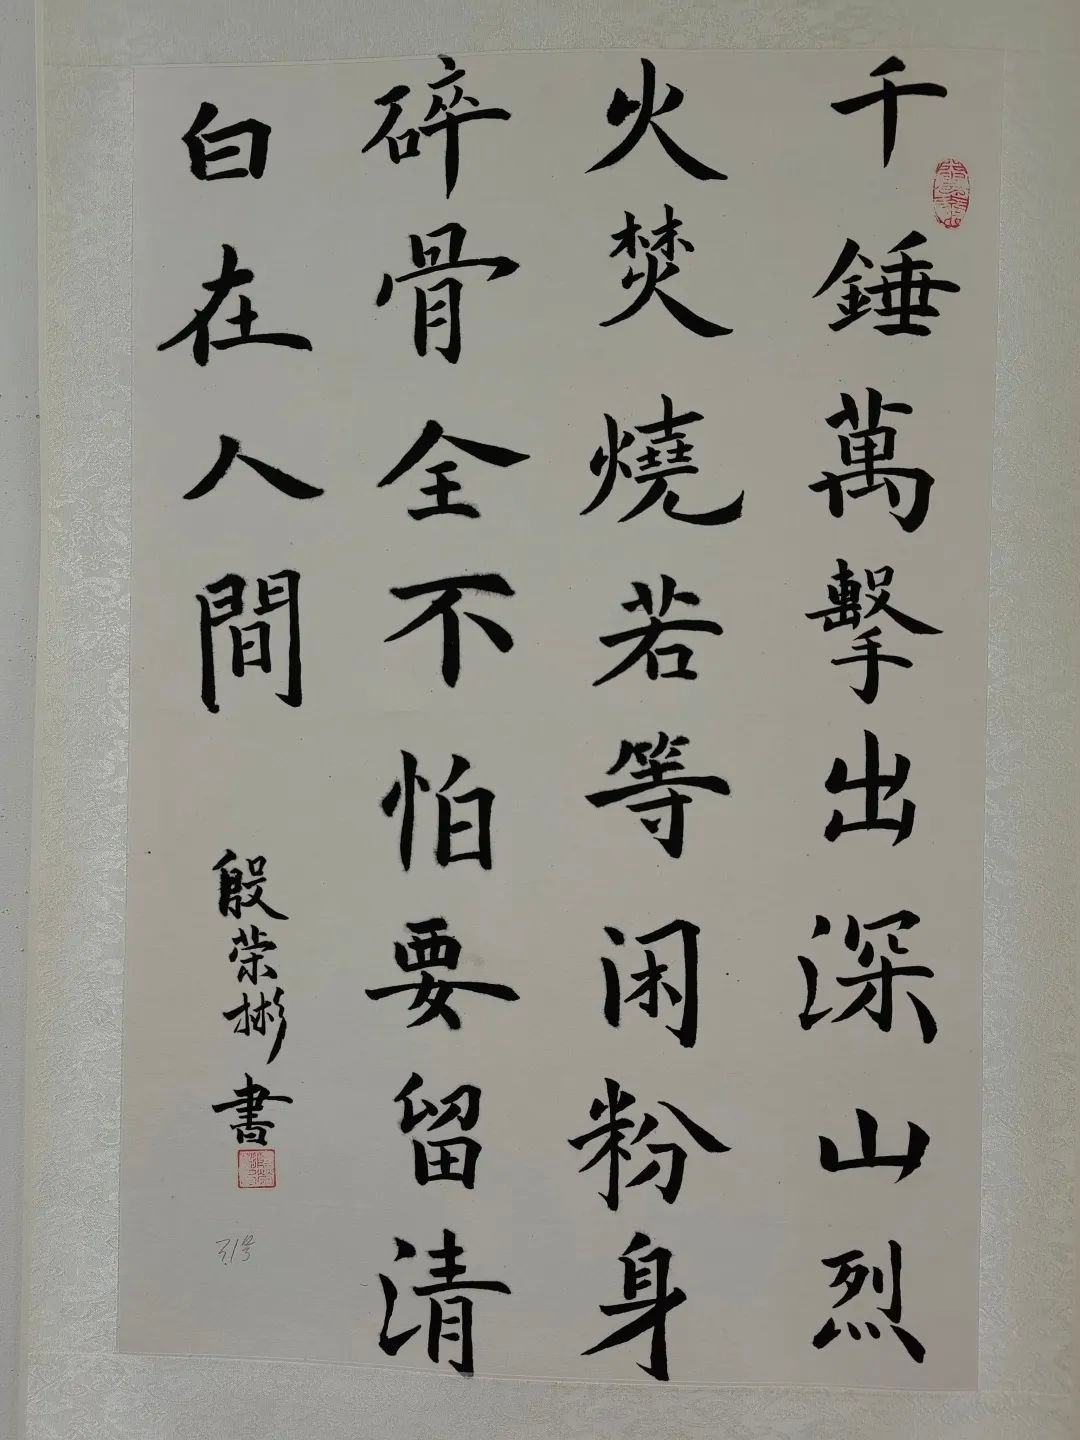 千錘萬擊出深山烈
火焚燒若等闲粉身
碎骨全不怕要留清
白在人間
殷荣彬書